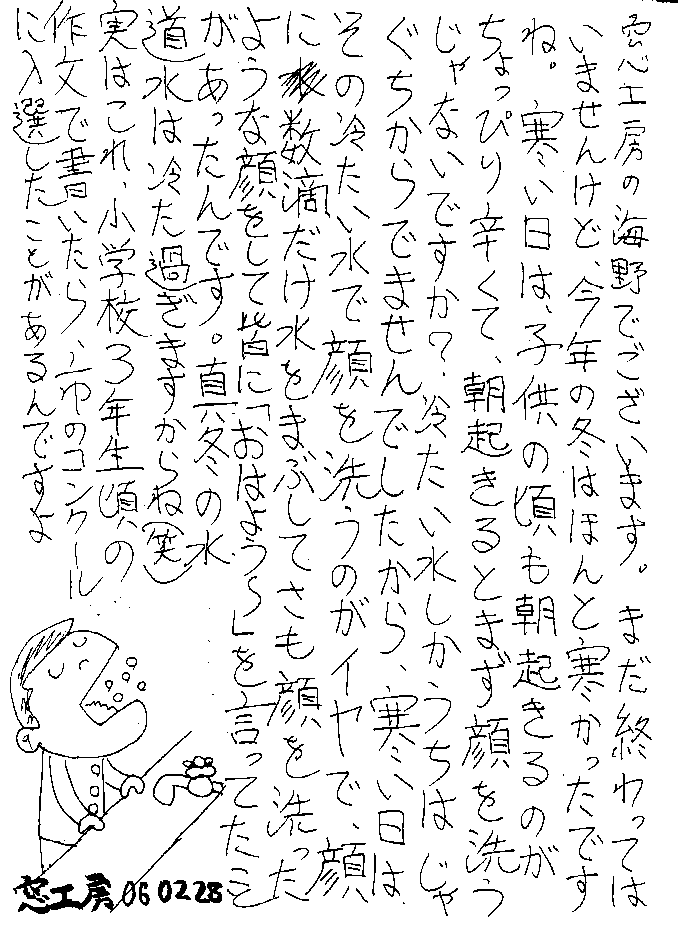 窓工房の海野でございます。まだ終わっては
いませんけど、今年の冬はほんと寒かったです
ね。寒い日は、子供の頃も朝起きるのが
ちょっぴり辛くて、朝起きるとまず顔を洗う
じゃないですか?冷たい水しかうちはじゃ
ぐちからでませんでしたから、寒い日は
その冷たい水で顔を洗うのがイヤで、顔
に数滴だけ水をまぶしてさも顔を洗った
ような顔をして皆に「おはよう〜」を言ってたこと
があったんです。真冬の水
道水は冷た過ぎますからね(笑)
実はこれ、小学校3年生頃の
作文で書いたら、市のコンクール
に入選したことがあるんですよ
窓工房 060228